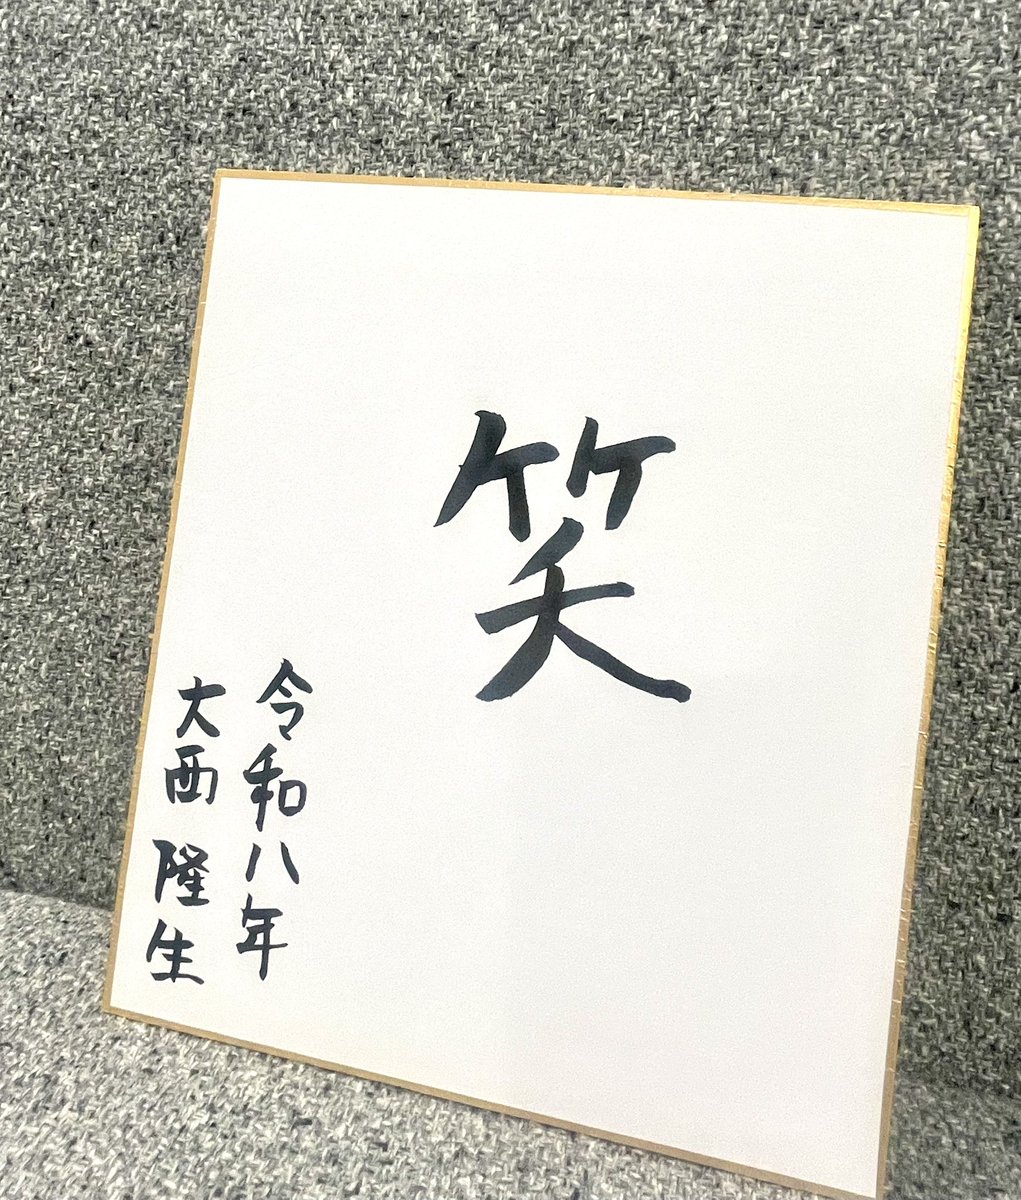 笑
令和八年
大西 隆生